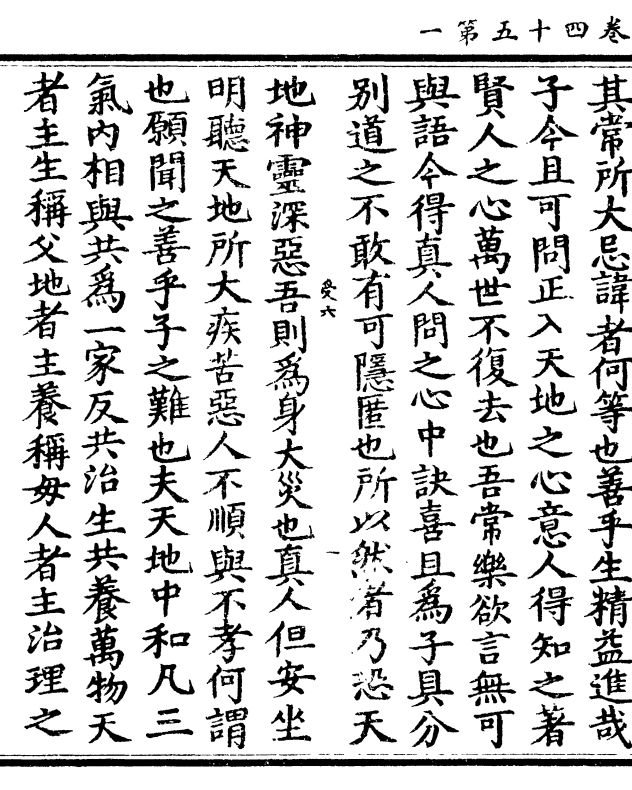 卷四十五第一
其常所大忌諱者何等也善乎生精益進哉
子今且可問正入天地之心意人得知之著
賢人之心萬世不復去也吾常樂欲言無可
與語今得真人問之心中訣喜且為子具分
别道之不敢有可隱匿也所以然者乃恐天
受六 一
地神靈深惡吾則為身大災也真人但安坐
明聽天地所大疾苦惡人不順與不孝何謂
也願聞之善乎子之難也夫天地中和凡三
氣內相與共為一家反共治生共養萬物天
者主生稱父地者主養稱母人者主治理之